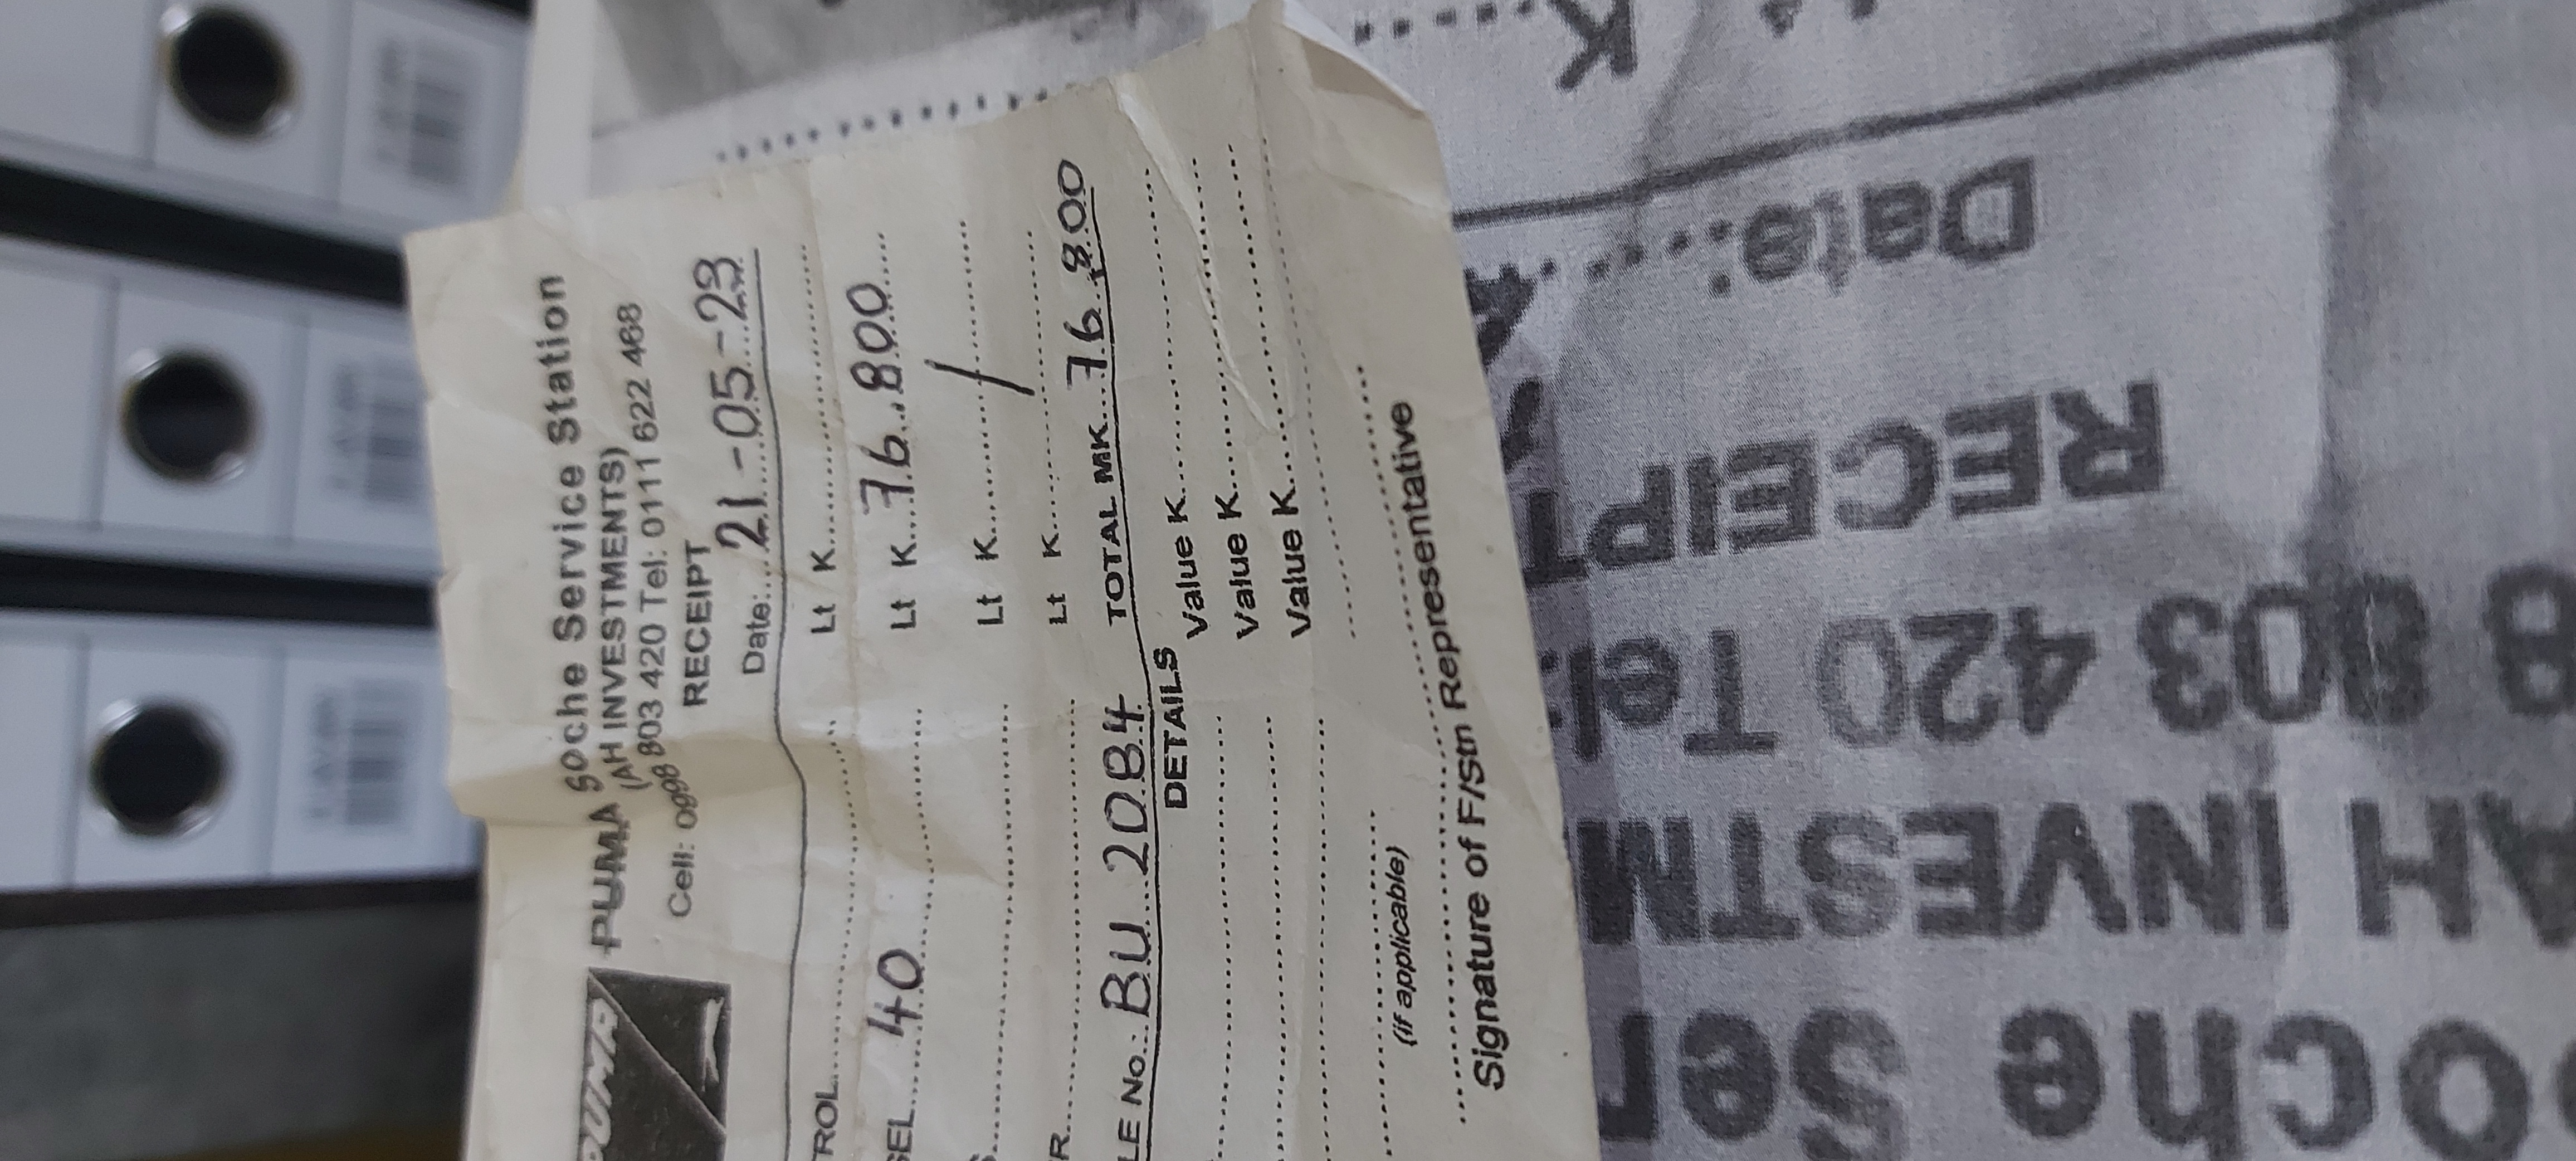 PUMA
PUMA Soche Service Station
(AH INVESTMENTS)
Cell: 0998 803 420 Tel: 0111 622 468
RECEIPT
Date:....21-05-23
TROL.................... Lt K....................
SEL....40.................... Lt K....76,800....
S.................... Lt K............/........
R.................... Lt K....................
LE No.: BU 2084 TOTAL MK....76,800
DETAILS
Value K....................
Value K....................
Value K....................
(if applicable)
Signature of F/Stn Representative
oche Ser
AH INVESTM
8 803 420 Tel:
RECEIPT
Date:....
K....